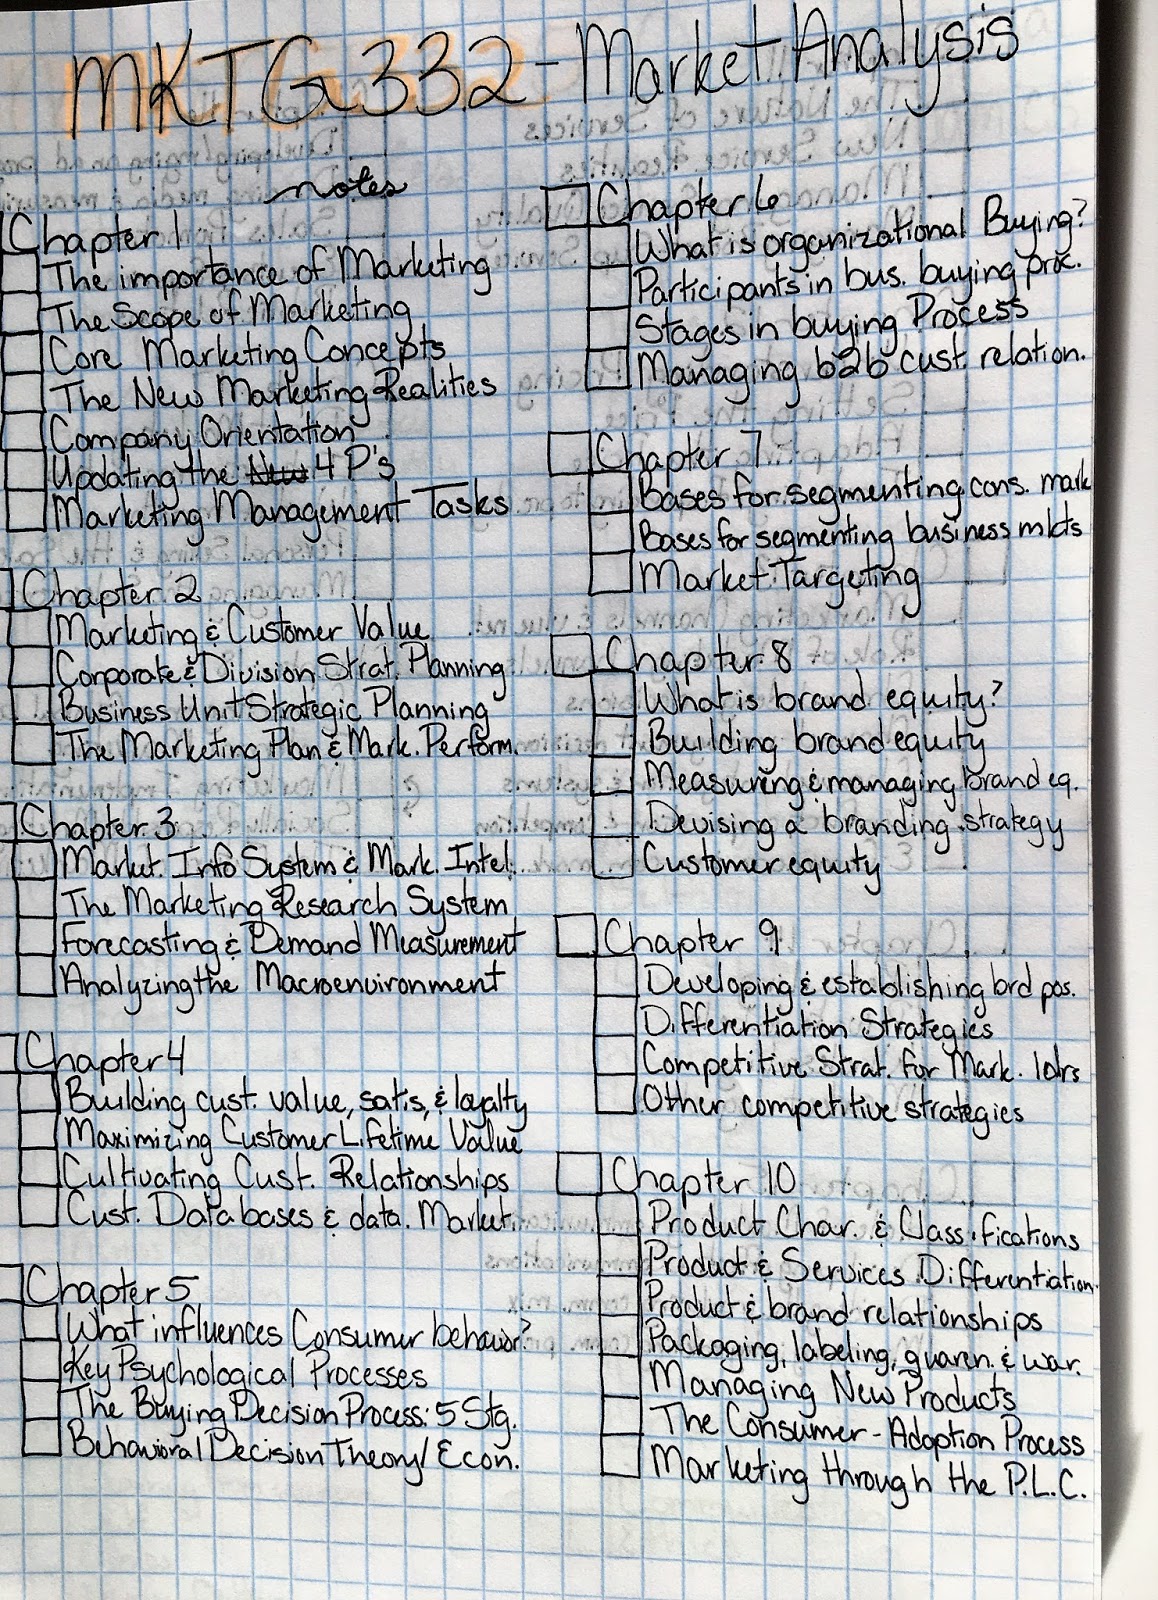 MKTG 332 - Market Analysis
notes
Chapter 1
The importance of Marketing
The Scope of Marketing
Core Marketing Concepts
The New Marketing Realities
Company Orientation
Updating the New 4 P's
Marketing Management Tasks
Chapter 2
Marketing & Customer Value
Corporate & Division Strat. Planning
Business Unit Strategic Planning
The Marketing Plan & Mark. Perform.
Chapter 3
Market. Info System & Mark. Intel.
The Marketing Research System
Forecasting & Demand Measurement
Analyzing the Macroenvironment
Chapter 4
Building cust. value, satis, & loyalty
Maximizing Customer Lifetime Value
Cultivating Cust. Relationships
Cust. Databases & data. Market.
Chapter 5
What influences Consumer behavior?
Key Psychological Processes
The Buying Decision Process: 5 Stg.
Behavioral Decision Theory/Econ.
Chapter 6
What is organizational Buying?
Participants in bus. buying proc.
Stages in buying Process
Managing b2b cust. relation.
Chapter 7
Bases for segmenting cons. mark
Bases for segmenting business mkts
Market Targeting
Chapter 8
What is brand equity?
Building brand equity
Measuring & managing brand eq.
Devising a branding strategy
Customer equity
Chapter 9
Developing & establishing brd pos.
Differentiation Strategies
Competitive Strat. for Mark. ldrs
Other competitive strategies
Chapter 10
Product Char. & Classifications
Product & Services Differentiation.
Product & brand relationships
Packaging, labeling, guaren. & war.
Managing New Products
The Consumer-Adoption Process
Marketing through the P.L.C.